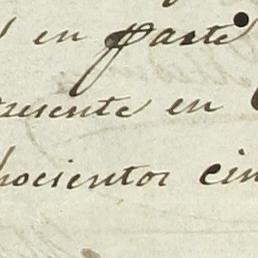 en parte
resente en
hocientos cin